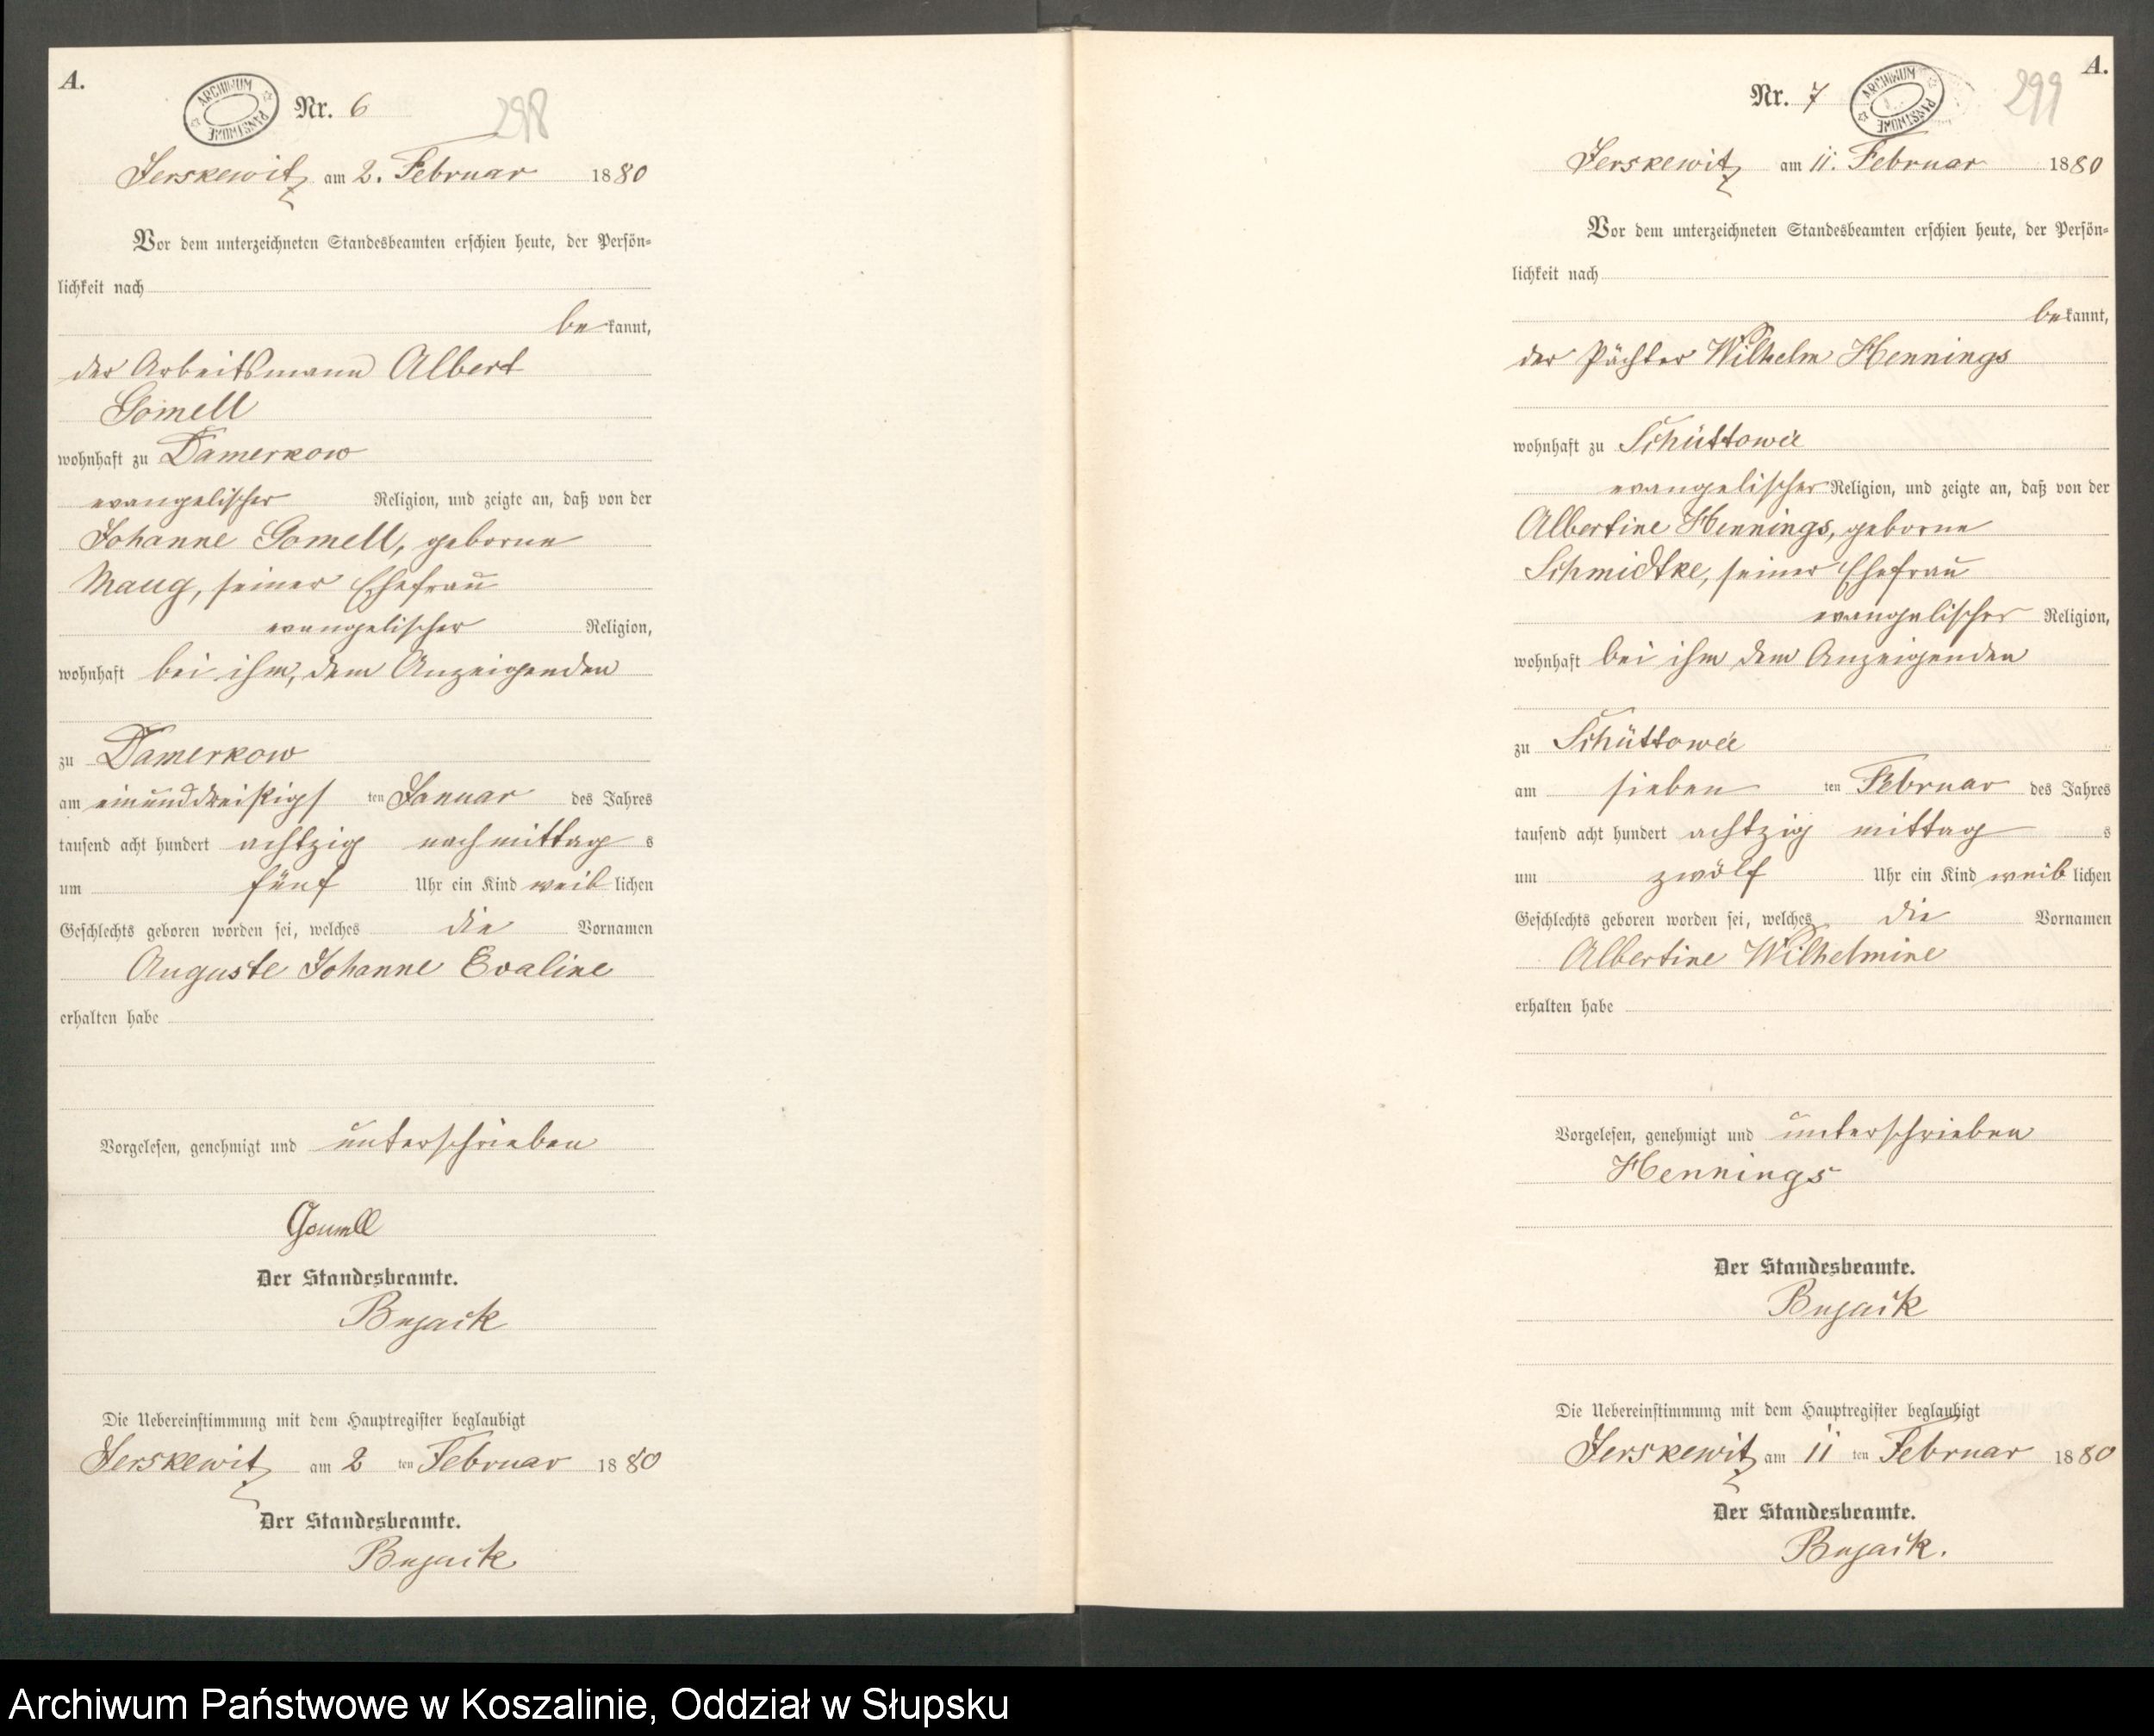 A.
ARCHIWUM PAŃSTWOWE
Nr. 6
298
Jerskewitz am 2. Februar 1880
Vor dem unterzeichneten Standesbeamten erschien heute, der Persön=
lichkeit nach
bekannt,
der Arbeitsmann Albert
Gomell
wohnhaft zu Damerkow
evangelischer Religion, und zeigte an, daß von der
Johanne Gomell, geborne
Maug, seiner Ehefrau
evangelischer Religion,
wohnhaft bei ihm, dem Anzeigenden
zu Damerkow
am einunddreißigsten Januar des Jahres
tausend acht hundert achtzig nachmittags
um fünf Uhr ein Kind weiblichen
Geschlechts geboren worden sei, welches die Vornamen
Auguste Johanne Evaline
erhalten habe
Vorgelesen, genehmigt und unterschrieben
Gomell
Der Standesbeamte.
Bujack
Die Uebereinstimmung mit dem Hauptregister beglaubigt
Jerskewitz am 2 ten Februar 1880
Der Standesbeamte.
Bujack
A.
Nr. 7
ARCHIWUM PAŃSTWOWE
299
Jerskewitz am 11. Februar 1880
Vor dem unterzeichneten Standesbeamten erschien heute, der Persön=
lichkeit nach
bekannt,
der Pächter Wilhelm Hennings
wohnhaft zu Schüttower
evangelischer Religion, und zeigte an, daß von der
Albertine Hennings, geborne
Schmidtke, seiner Ehefrau
evangelischer Religion,
wohnhaft bei ihm dem Anzeigenden
zu Schüttower
am siebenten Februar des Jahres
tausend acht hundert achtzig mittags
um zwölf Uhr ein Kind weiblichen
Geschlechts geboren worden sei, welches die Vornamen
Albertine Wilhelmine
erhalten habe
Vorgelesen, genehmigt und unterschrieben
Hennings
Der Standesbeamte.
Bujack
Die Uebereinstimmung mit dem Hauptregister beglaubigt
Jerskewitz am 11 ten Februar 1880
Der Standesbeamte.
Bujack.
Archiwum Państwowe w Koszalinie, Oddział w Słupsku